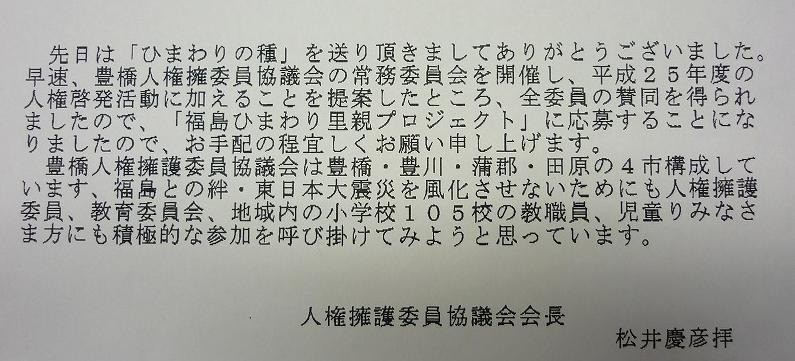 先日は「ひまわりの種」を送り頂きましてありがとうございました。
早速、豊橋人権擁委員協議会の常務委員会を開催し、平成２５年度の
人権啓発活動に加えることを提案したところ、全委員の賛同を得られ
ましたので、「福島ひまわり里親プロジェクト」に応募することにな
りましたので、お手配の程宜しくお願い申し上げます。
豊橋人権擁護委員協議会は豊橋・豊川・蒲郡・田原の４市構成して
います、福島との絆・東日本大震災を風化させないためにも人権擁護
委員、教育委員会、地域内の小学校１０５校の教職員、児童りみなさ
ま方にも積極的な参加を呼び掛けてみようと思っています。
人権擁護委員協議会会長
松井慶彦拝